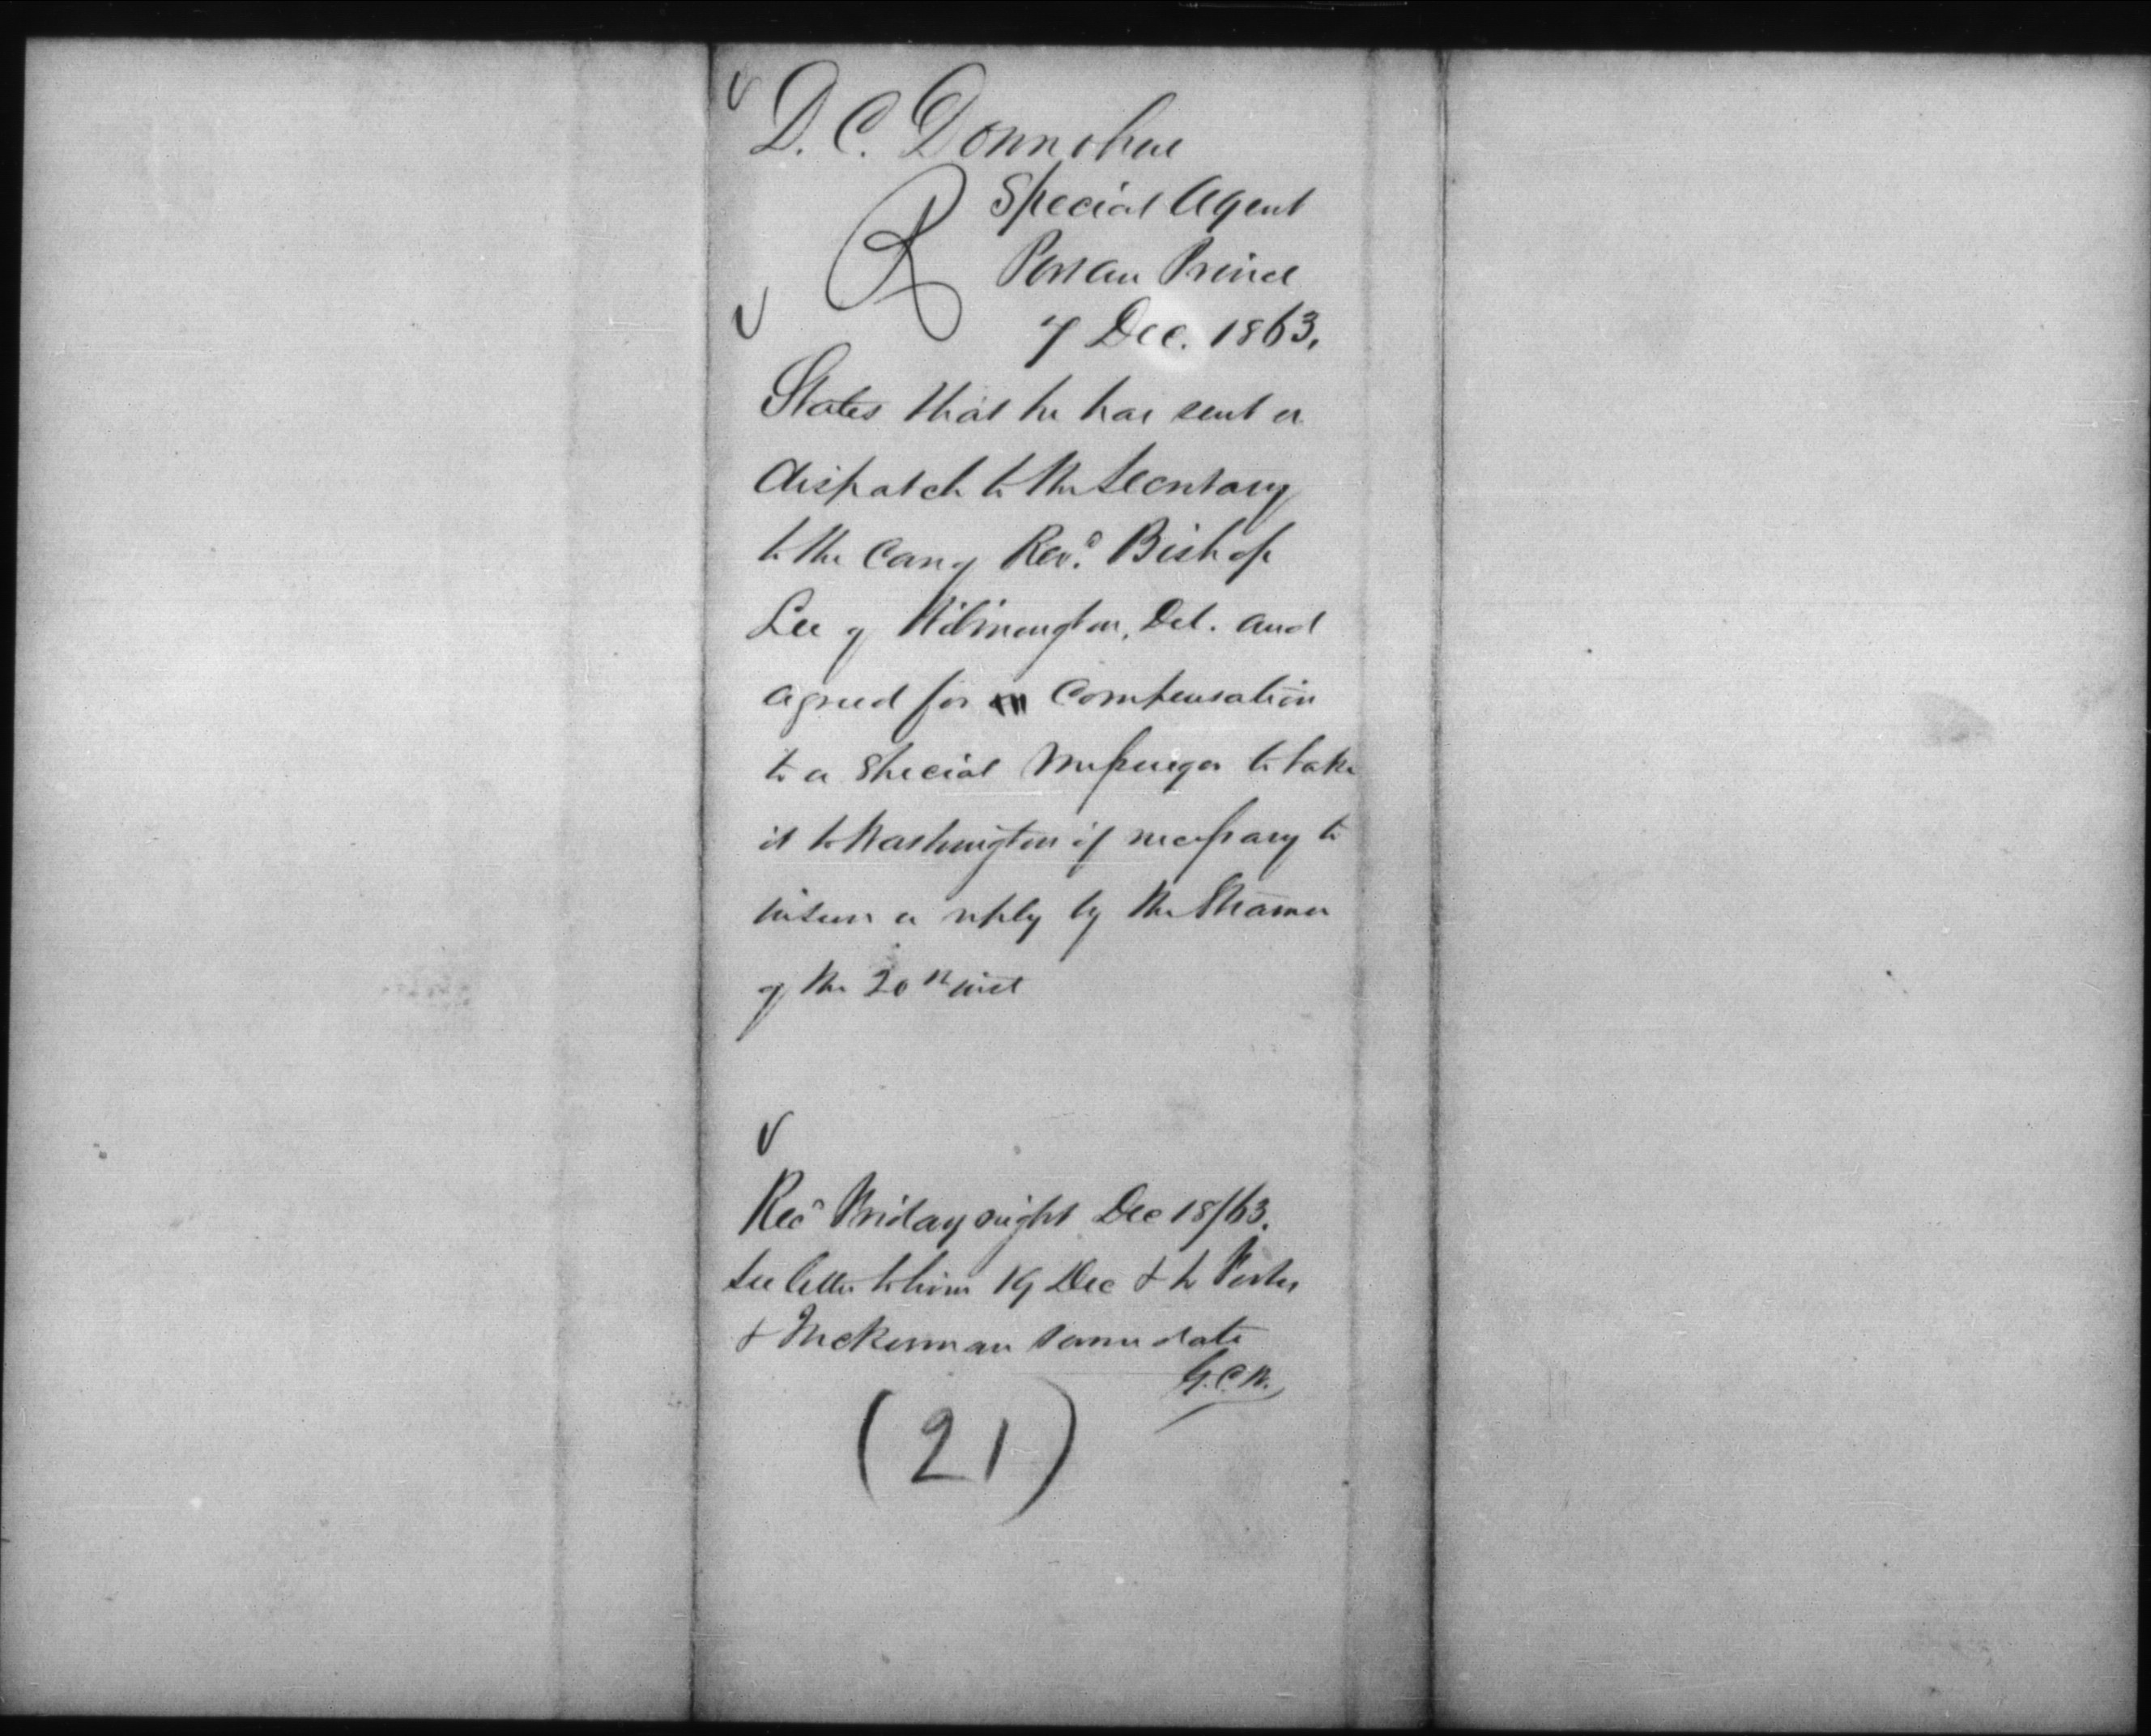 D. C. Donnohue
R Special Agent
Port au Prince
7 Dec. 1863.
States that he has sent a
dispatch to the Secretary
to the care of Revd. Bishop
Lee of Wilmington, Del. and
agreed for compensation
to a special messenger to take
it to Washington if necessary to
insure a reply by the Steamer
of the 20th inst
Recd Friday night Dec 18/63.
See letter to him 19 Dec & to Foster
& McKinnan same date
(21)